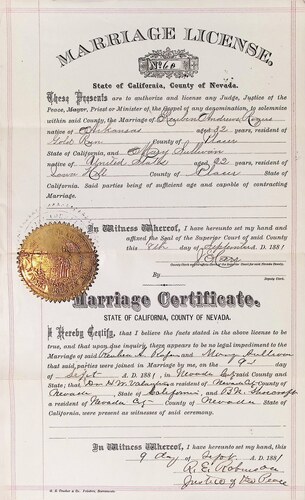 MARRIAGE LICENSE,
No 60
State of California, County of Nevada.
These Presents are to authorize and license any Judge, Justice of the
Peace, Mayor, Priest or Minister of the Gospel of any denomination, to solemnize
within said County, the Marriage of Reuben Andrew Rogers
native of Arkansas aged 32 years, resident of
Gold Run County of Placer
State of California, and Mary Sullivan
native of United States aged 22 years, resident of
Iowa Hill County of Placer State of
California. Said parties being of sufficient age and capable of contracting
Marriage.
In Witness Whereof, I have hereunto set my hand and
affixed the Seal of the Superior Court of said County
this 8th day of September A. D. 1881
By
Deputy Clerk
Marriage Certificate.
STATE OF CALIFORNIA, COUNTY OF NEVADA.
I Hereby Certify, that I believe the facts stated in the above license to be
true, and that upon due inquiry, there appears to be no legal impediment to the
Marriage of said Reuben A Rogers and Mary Sullivan
that said parties were joined in Marriage by me, on the 9th
day of Sept A. D. 1881, in Nevada City said County and
State; that Dr. H. W. a resident of Nevada City County of
Nevada State of California, and B. N.
a resident of Nevada City, County of Nevada State of
California, were present as witnesses of said ceremony.
In Witness Whereof, I have hereunto set my hand, this
9 day of Sept A. D. 1881
R. E. Robinson
Justice of the Peace